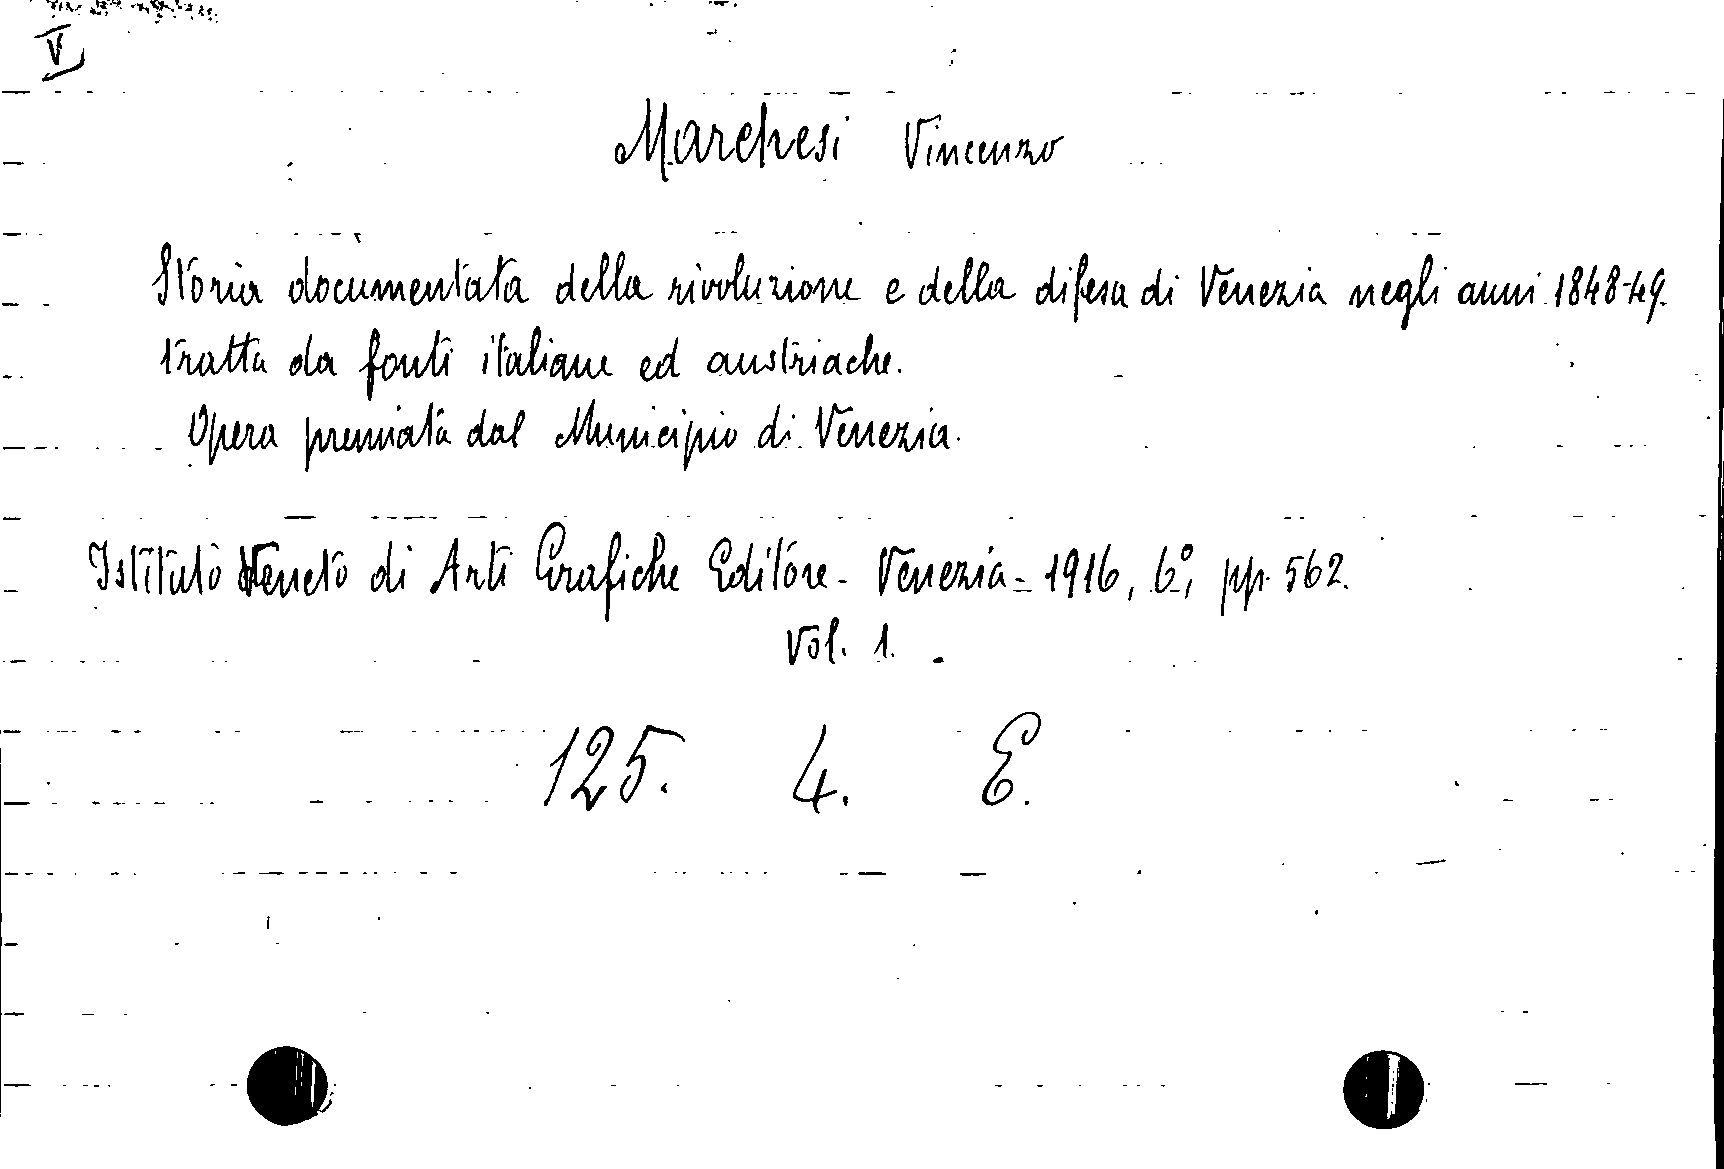 V
Marchesi Vincenzo
Storia documentata della rivoluzione e della difesa di Venezia negli anni 1848-49.
tratta da fonti italiane ed austriache.
Opera premiata dal Municipio di Venezia.
Istituto Veneto di Arti Grafiche Editore - Venezia - 1916, 6°, pp. 562.
Vol. 1.
125. 4. E.